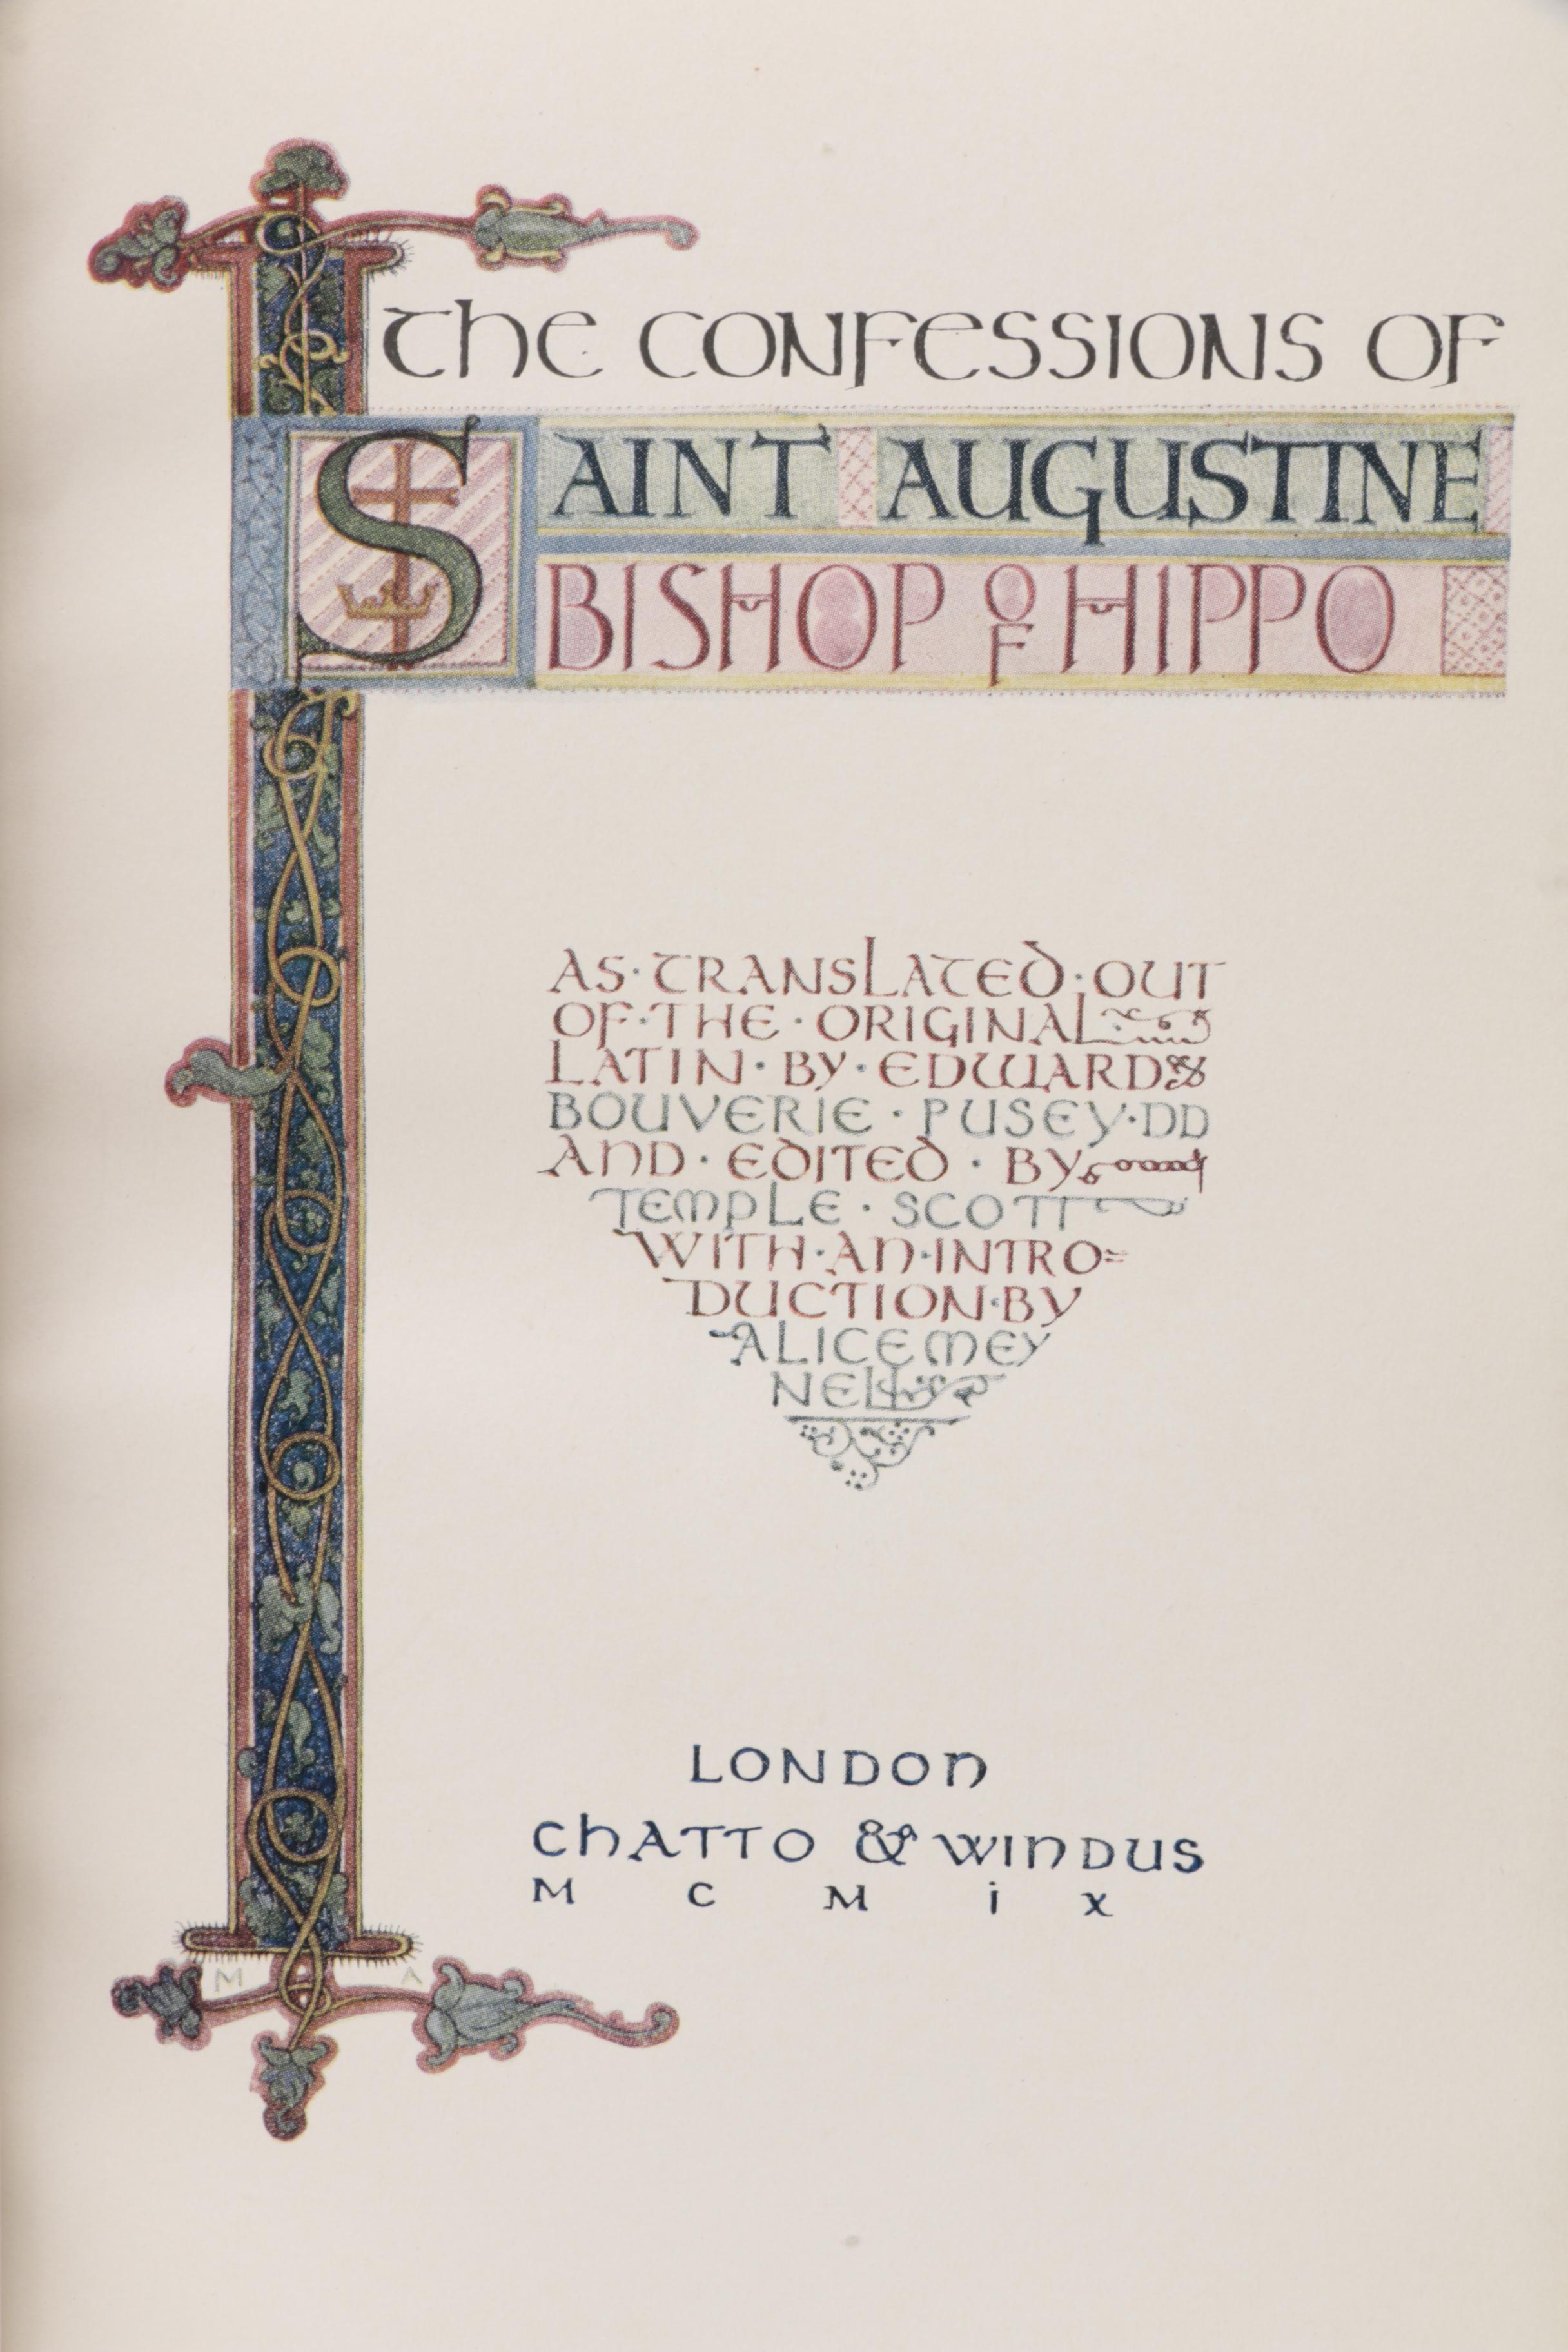 THE CONFESSIONS OF
SAINT AUGUSTINE
BISHOP OF HIPPO
AS·TRANSLATED·OUT
OF·THE·ORIGINAL
LATIN·BY·EDWARD
BOUVERIE·PUSEY·DD
AND·EDITED·BY
TEMPLE·SCOTT
WITH·AN·INTRO=
DUCTION·BY
ALICE MEY
NELL
LONDON
CHATTO & WINDUS
M C M i X
M A